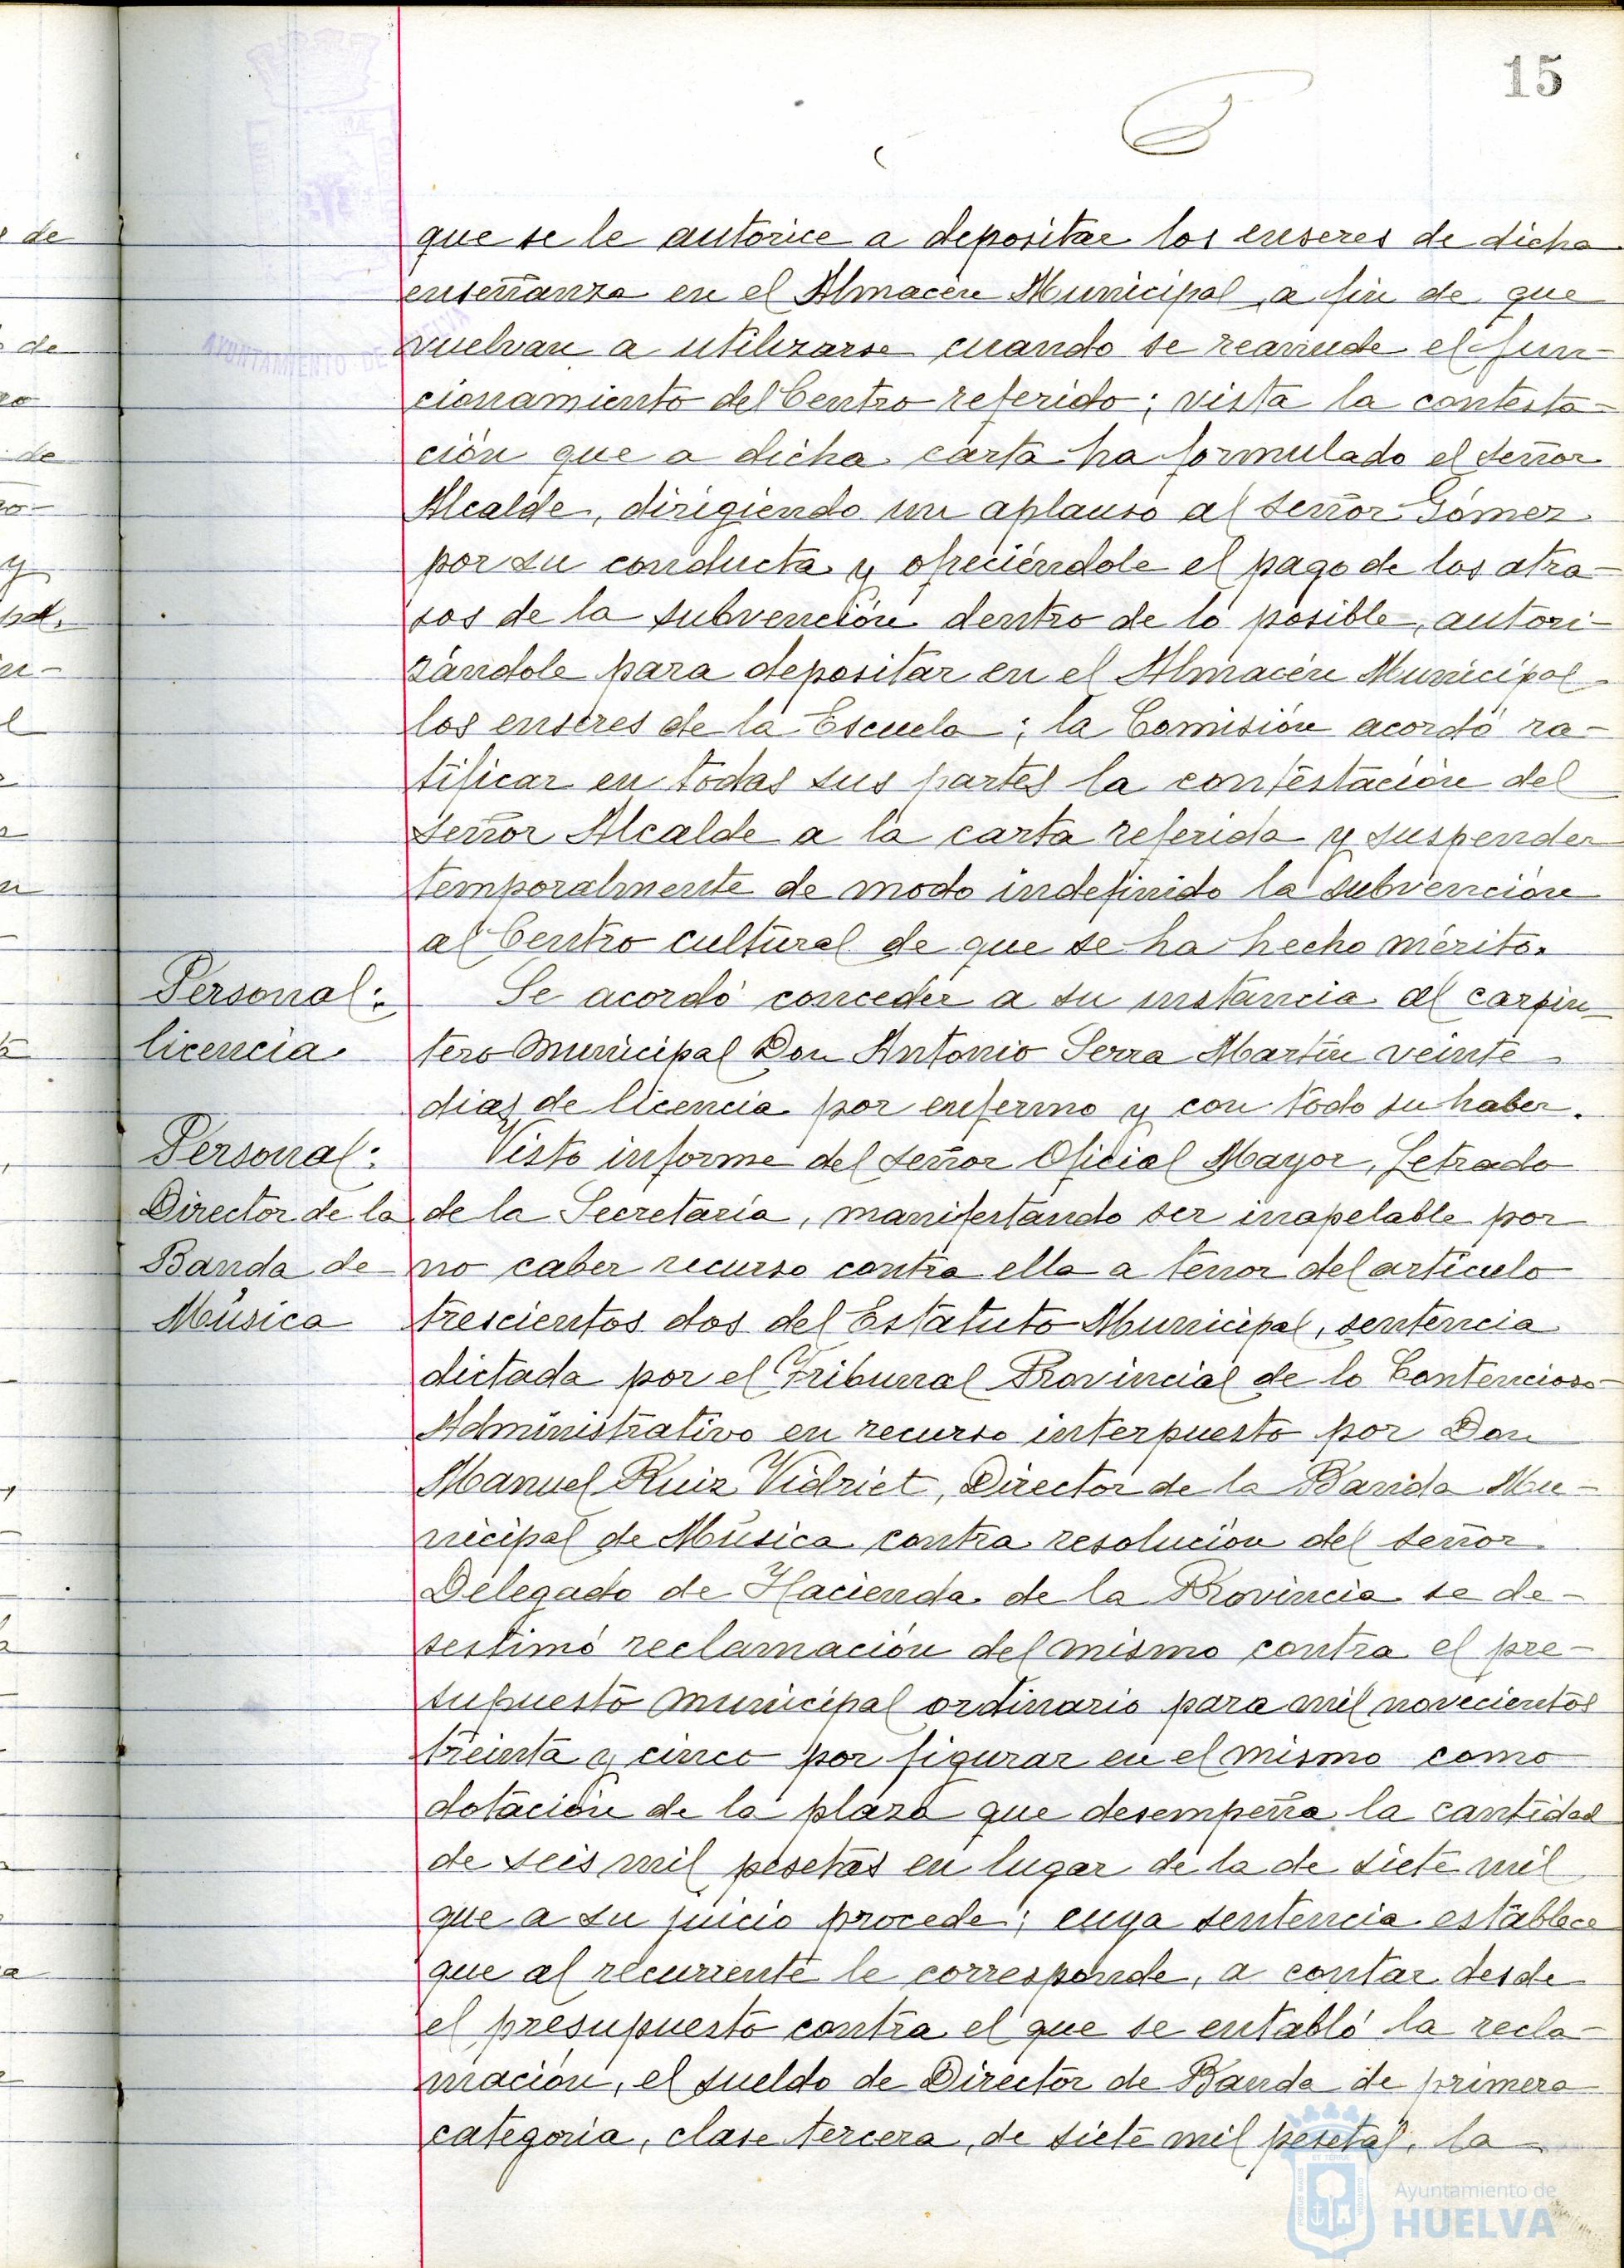 15
que se le autorice a depositar los enseres de dicha
enseñanza en el Almacén Municipal, a fin de que
vuelvan a utilizarse cuando se reanude el fun-
cionamiento del Centro referido; vista la contesta-
ción que a dicha carta ha formulado el señor
Alcalde, dirigiendo un aplauso al señor Gómez
por su conducta y ofreciéndole el pago de los atra-
sos de la subvención dentro de lo posible, autori-
zándole para depositar en el Almacén Municipal
los enseres de la Escuela; la Comisión acordó ra-
tificar en todas sus partes la contestación del
señor Alcalde a la carta referida y suspender
temporalmente de modo indefinido la subvención
al Centro cultural de que se ha hecho mérito.
Personal:
licencia.
Se acordó conceder a su instancia al carpin-
tero municipal Don Antonio Serra Martín veinte
dias de licencia por enfermo y con todo su haber.
Personal:
Director de la
Banda de
Música
Visto informe del señor Oficial Mayor, Letrado
de la Secretaría, manifestando ser inapelable por
no caber recurso contra ella a tenor del artículo
trescientos dos del Estatuto Municipal, sentencia
dictada por el Tribunal Provincial de lo Contencioso-
Administrativo en recurso interpuesto por Don
Manuel Ruiz Vidriet, Director de la Banda Mu-
nicipal de Música contra resolución del señor
Delegado de Hacienda de la Provincia se de-
sestimó reclamación del mismo contra el pre-
supuesto municipal ordinario para mil novecientos
treinta y cinco por figurar en el mismo como
dotación de la plaza que desempeña la cantidad
de seis mil pesetas en lugar de la de siete mil
que a su juicio procede; cuya sentencia establece
que al recurrente le corresponde, a contar desde
el presupuesto contra el que se entabló la recla-
mación, el sueldo de Director de Banda de primera
categoría, clase tercera, de siete mil pesetas, la
AYUNTAMIENTO DE HUELVA
Ayuntamiento de
HUELVA